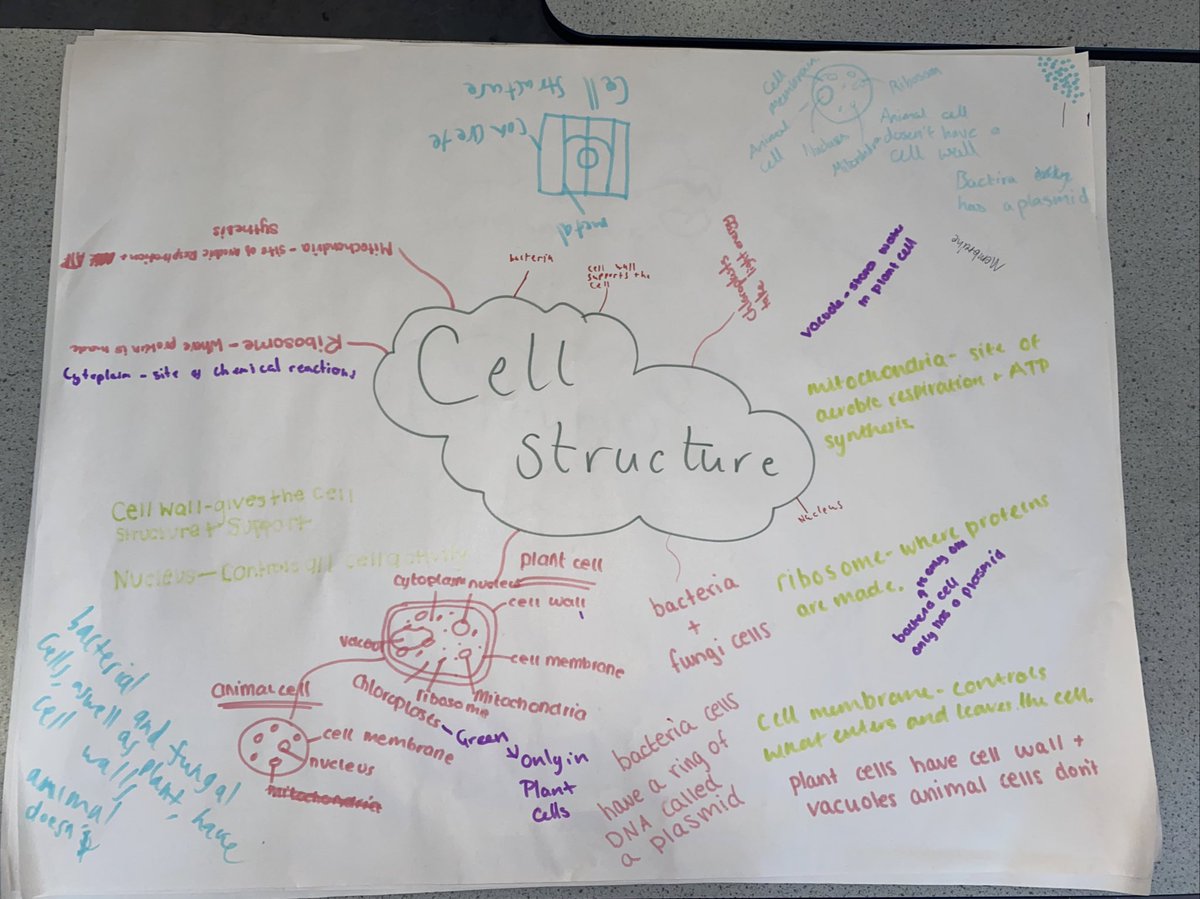 Cell
structure
Cell
structure
concrete
metal
Cell
membrain
Ribosom
Animal
cell
Nucleus
Animal cell
dosen't have a
cell wall
Bactira
has a plasmid
Membrane
Mitochondria - site of
sythesis
bacteria
cell wall
supports the
cell
take light energy
vacuole - stores water
in plant cell
Ribosome - where protein is made
Cytoplasm - site of chemical reactions
mitochondria - site of
aerobic respiration + ATP
synthesis.
Nucleus
Cell wall - gives the cell
structure + support
Nucleus - Controls all cell activity
plant cell
cytoplasm
nucleus
cell wall
cell membrane
mitochondria
ribosome
Chloroplases - Green
only in
Plant
cells
animal cell
cell membrane
nucleus
mitochondria
bacteria
+
fungi cells
ribosome - where proteins
are made.
bacteria cell
only has a plasmid
bacterial and fungal
cells, aswell as plant, have
cell wall,
animal
doesn't
bacteria cells
have a ring of
DNA called
a plasmid
cell membrane - controls
what enters and leaves the cell.
plant cells have cell wall +
vacuoles animal cells don't